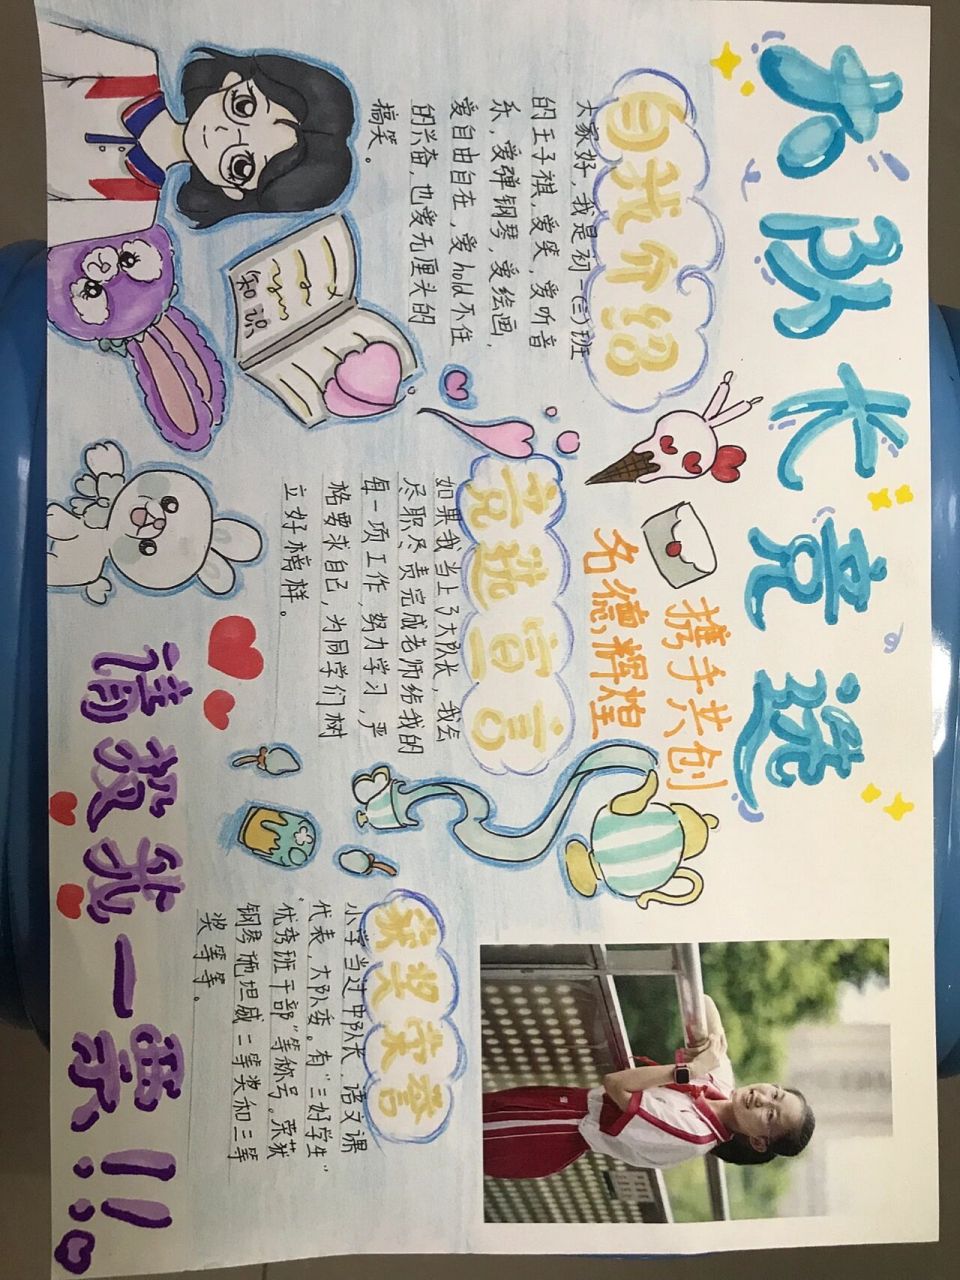 大队长竞选
自我介绍
大家好，我是初一(三)班
的王子祺，爱笑，爱听音
乐，爱弹钢琴，爱绘画，
爱自由自在，爱hold不住
的兴奋，也爱无厘头的
搞笑。
知识
携手共创
名德辉煌
竞选宣言
如果我当上了大队长，我会
尽职尽责完成老师给我的
每一项工作，努力学习，严
格要求自己，为同学们树
立好榜样。
获奖荣誉
小学当过中队长，语文课
代表，大队委。有“三好学生”
“优秀班干部”等称号。荣获
钢琴施坦威二等奖和三等
奖等等。
请投我一票!!